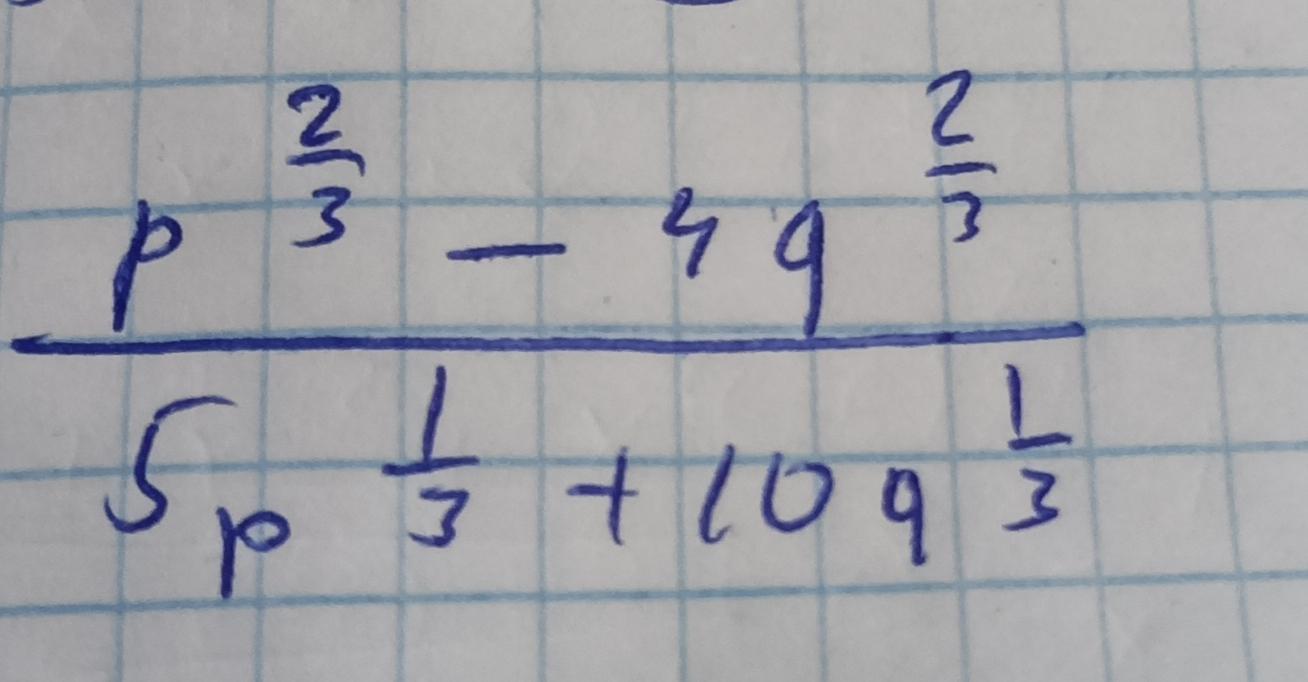 p^(2/3) - 4q^(2/3)
5p^(1/3) + 10q^(1/3)